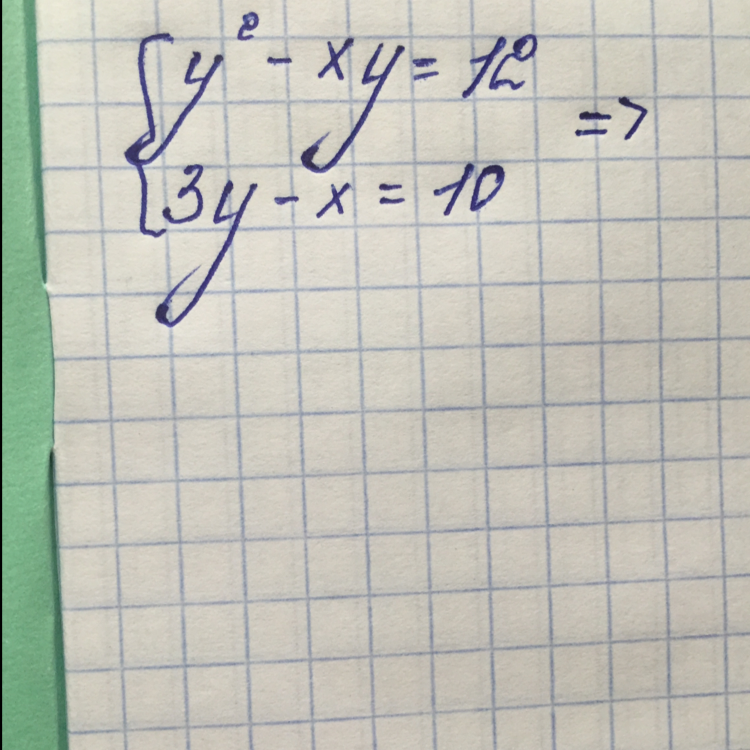 { y² - xy = 12
{ 3y - x = 10 =>